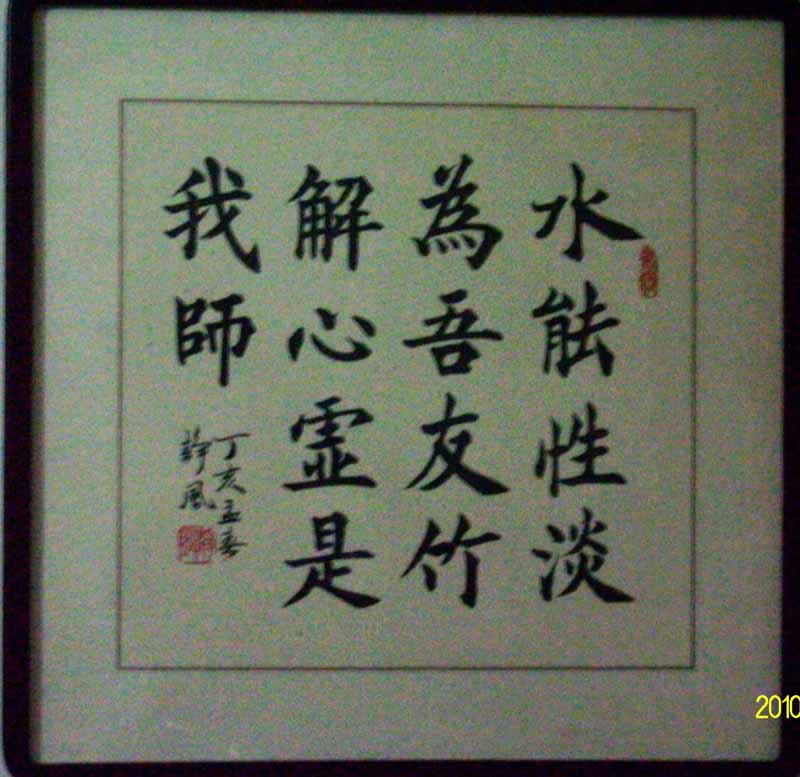 水能性淡
為吾友竹
解心霊是
我師
丁亥孟春
静風
2010